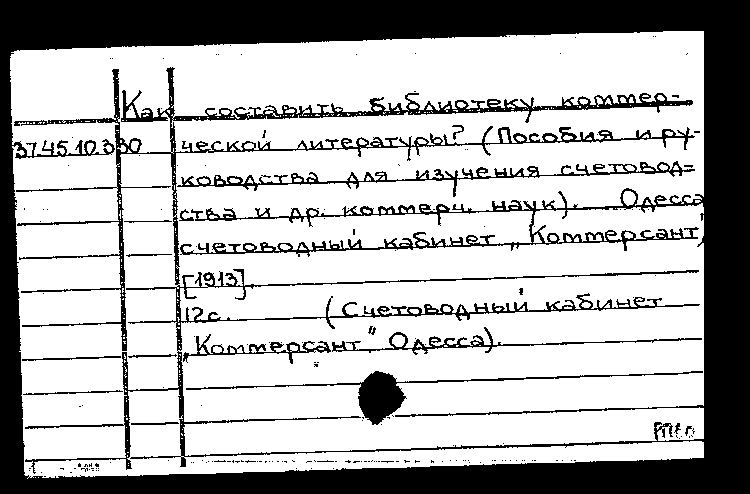 Как составить библиотеку коммер-
37.45.10.330 ческой литературы? (Пособия и ру-
ководства для изучения счетовод-
ства и др. коммерч. наук). Одесса
счетоводный кабинет „Коммерсант",
[1913].
12с. (Счетоводный кабинет
„Коммерсант". Одесса).